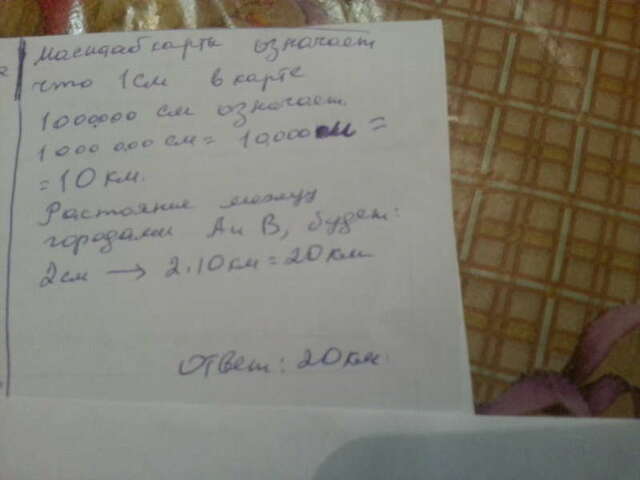 Масштаб карты означает
что 1см в карте
1000000 см означает.
1000000 см = 10000м =
= 10 км.
Растояние между
городами А и В, будет:
2см → 2.10км = 20 км
ответ: 20км.